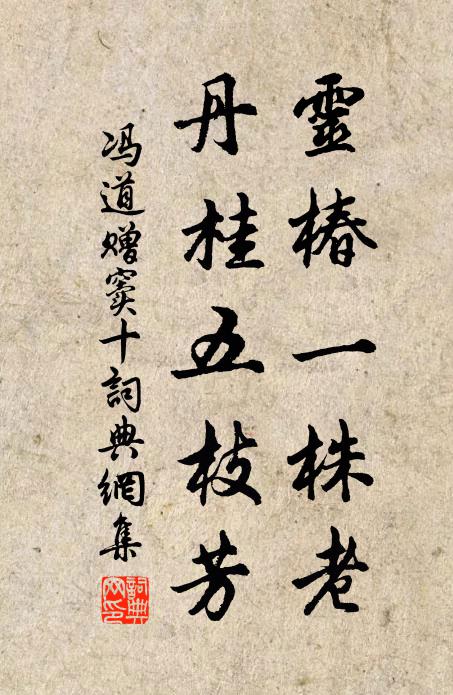 靈椿一株老
丹桂五枝芳
冯道赠窦十詞典網集
詞典網印